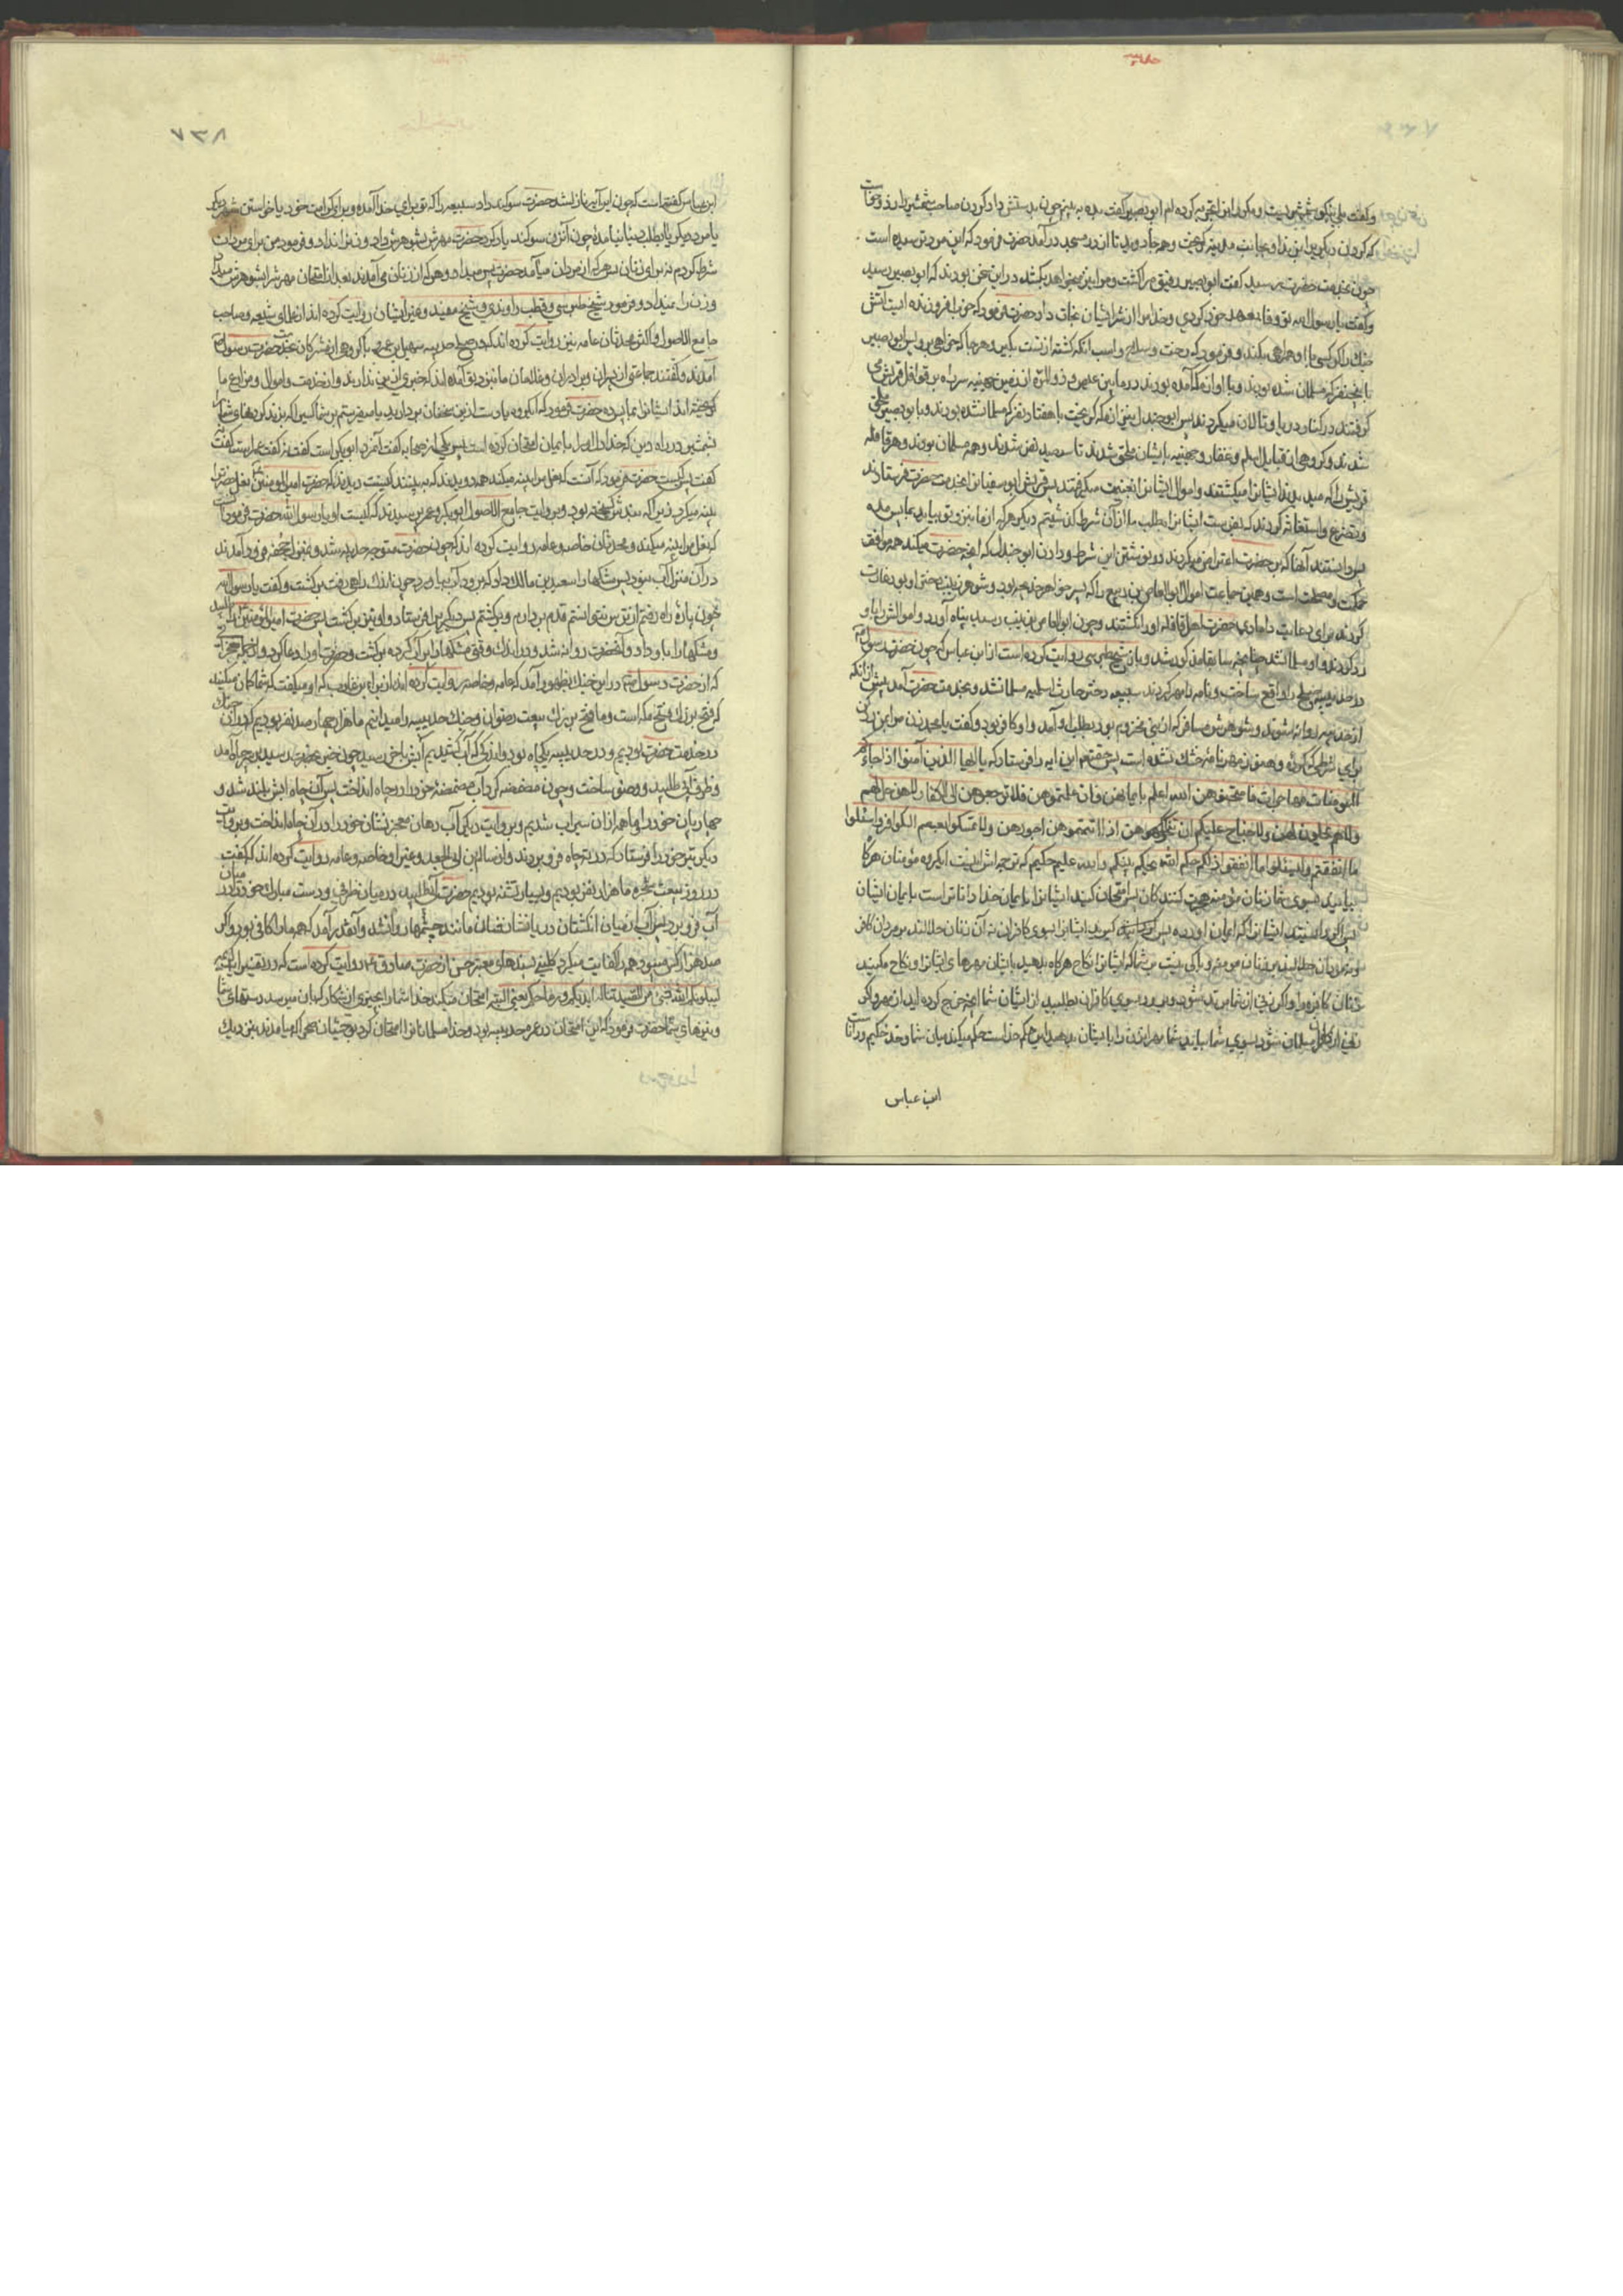 حدیبیه
و گفت بلی نیکو شمشیریست و مکرر این تجربه کرده ام ابو بصیر گفت بده ببینم چون بدستش داد کردن صاحب شمشیر را زد و خواست
که کردن دیگری را بزند او بجانب مدینه کریخت و همه جا دوید تا از در مسجد درآمد حضرت فرمود که این مرد ترسیده است
چون بخدمت حضرت رسید گفت ابو بصیر رفیق مرا کشت و مرا نیز میخواهد بکشد در این سخن بودند که ابو بصیر رسید
و گفت یا رسول الله تو وفا بعهد خود کردی و خدا مرا از شر ایشان نجات داد حضرت فرمود که خوب افروزنده ایست آتش
جنک را اگر کسی با او همراهی بکند و فرمود که رخت و سلاح و اسب آنکه کشته از تست بگیر و هر جا که خواهی برو پس ابو بصیر
با پنج نفر که مسلمان شده بودند و با او از مکه آمده بودند در ما بین عیص و ذو المره از زمین جهینه سر راه بر قوافل قریش می
گرفتند در کنار دریا و تالان میکردند پس ابو جندل نیز از مکه کریخت با هفتاد نفر که مسلمان شده بودند و با ابو بصیر ملحق
شدند و کروهی از قبایل اسلم و غفار و جهینه بایشان ملحق شدند تا سیصد نفر شدند و همه مسلمان بودند و هر قافله
قریش را که میدیدند ایشانرا میکشتند و اموال ایشانرا بغنیمت میگرفتند پس قریش ابو سفیانرا بخدمت حضرت فرستادند
و تضرع و استغاثه کردند که بفرست ایشانرا بطلب ما از آن شرط گذشتیم دیگر هر که از ما بنزد تو بیاید بما پس مده
پس دانستند آنها که بر حضرت اعتراض میکردند در نوشتن این شرط و دادن ابو جندل که آنچه حضرت میکند همه موافق
حکمت و مصلحت است و همین جماعت اموال ابو العاص بن ربیع را که پسر خواهر خدیجه بود و شوهر زینب
کردند برای رعایت دامادی حضرت اهل قافله او را نکشتند و چون ابو العاص بزینب رسید پناه آورد و اموالش را باو
رد کردند و او مسلمان شد چنانچه سابقا مذکور شد و باز شیخ طبرسی روایت کرده است از ابن عباس که چون حضرت رسول
در حدیبیه صلح را واقع ساخت و نامه را مهر کردند سبیعه دختر حارث اسلمیه مسلمان شد و بخدمت حضرت آمد پیش از آنکه
از حدیبیه روانه شوند و شوهرش مسافر که از بنی مخزوم بود بطلب او آمد و او کافر بود و گفت یا محمد زن مرا بمن رد کن
برای شرطی که کرده و هنوز مهر نامه خشک نشده است پس حقتعالی این ایه را فرستاد که یا ایها الذین آمنوا اذا جاءکم
المؤمنات مهاجرات فامتحنوهن الله اعلم بایمانهن فان علمتموهن فلا ترجعوهن الی الکفار لا هن حل لهم
ولا هم یحلون لهن ولا جناح علیکم ان تنکحوهن اذا آتیتموهن اجورهن ولا تمسکوا بعصم الکوافر واسئلوا
ما انفقتم ولیسئلوا ما انفقوا ذلکم حکم الله یحکم بینکم والله علیم حکیم که ترجمه اش اینست ای کروه مؤمنان هرگاه
بیایند بسوی شما زنان مؤمنه هجرت کنندکان پس امتحان کنید ایشانرا بایمان خدا داناتر است بایمان ایشان
پس اگر دانستید ایشانرا که ایمان آورده پس ایشانرا بسوی کافران نه آن زنان حلالند بر مردان کافر
و نه مردان حلالند بر زنان مومنه و باکی نیست بر شما که ایشانرا نکاح هرگاه بدهید بایشان مهرهای ایشانرا و نکاح مکنید
زنان کافره را و اگر زنی از شما مرتد شود و برود بسوی کافران بطلبید از ایشان شما آنچه خرج کرده اید از مهر و اگر
زنی از کافران مسلمان شود بسوی شما بیاید شما مهر آن زن را بایشان بدهید این حکم خداست حکم میکند میان شما و خدا حکیم و داناست
ابن عباس
٨٣٧
ابن عباس گفته است که چون این آیه نازل شد حضرت سوگند داد سبیعه را که تو برای خدا آمده و برای کراهت خود یا خواستن شوهر دیگر
یا مرد دیگر یا بطلب دنیا نیامده چون آن زن سوگند یاد کرد حضرت مهرش بشوهرش داد و زن را نداد و فرمود من برای مردان
شرط کردم نه برای زنان و هر که از مردان میآمد حضرت پس میداد و هر که از زنان می آمدند بعد از امتحان مهرش را بشوهرش میداد
و زن را نمیداد و فرمود شیخ طبرسی و قطب راوندی و شیخ مفید و غیر ایشان روایت کرده اند از علمای شیعه و صاحب
جامع الاصول و اکثر محدثان عامه نیز روایت کرده اند که در صلح حدیبیه سهیل بن عمرو با گروهی از مشرکان بخدمت حضرت رسول
آمدند و گفتند جماعتی از پسران و برادران و غلامان ما بنزد تو آمده اند که خبری از دین ندارند و از خدمت و اموال و مزارع ما
کریخته اند ایشانرا بما پس ده حضرت فرمود که ای کروه یا دست ازین سخنان بردارید یا میفرستم بر شما کسی را که بزند کردنهای شما
بشمشیر در راه دین که خدا دل او را بایمان امتحان کرده است پس یکی از صحابه گفت آنمرد ابوبکر است گفت نه گفت عمر است گفت نه
گفت پس کیست حضرت فرمود که آنست که نعل مرا پینه میکند همه دویدند که به بینند کیست دیدند که حضرت امیر المؤمنین نعل حضرت را
پینه میکرد بروایت جامع الاصول ابوبکر و عمر پرسیدند که کیست او یا رسول الله حضرت فرمود آنست
که نعل مرا پینه میکند و محدثان خاصه و عامه روایت کرده اند که چون حضرت متوجه حدیبیه شد و بمنزل جحفه فرود آمدند
در آن منزل آب نبود پس مشکها را بسعد بن مالک داد که برود آب بیاورد چون اندک راهی رفت برگشت و گفت یا رسول الله
چون پاره راه رفتم از ترس نتوانستم قدم بردارم و برگشتم پس دیگری را فرستاد و او نیز برگشت پس حضرت امیر المؤمنین را طلبید
و مشکها را باو داد و آنحضرت روانه شد و در اندک وقتی مشکها را پر آب کرده برگشت و حضرت او را دعا کرد
که از حضرت رسول در این جنک بظهور آمد که عامه و خاصه روایت کرده اند از براء بن عازب که او میگفت که شما کمان میکنید
که فتح بزرک فتح مکه است و ما فتح بزرک بیعت رضوان و جنک حدیبیه را میدانیم ما هزار و چهار صد نفر بودیم که در آن جنک
در خدمت حضرت بودیم و در حدیبیه یک چاه بود و از بس که آب کشیدیم آبش بآخر رسید چون خبر بحضرت رسید بسر چاه آمد
و ظرف آبی طلبید و وضو ساخت و چون مضمضه کرد آب مضمضه خود را در چاه انداخت پس آن چاه آبش بلند شد و
چهار پایان خود را و ما همه از ان سیراب شدیم و بروایت دیگر آب دهان معجز نشان خود را در آن چاه انداخت و بروایت
دیگر تیر خود را فرستاد که در ته چاه فرو بردند و از سالم بن ابی الجعد و غیر او خاصه و عامه روایت کرده اند که گفت
در روز بیعت شجره ما هزار نفر بودیم و بسیار تشنه بودیم حضرت آبی طلبید در میان ظرفی و دست مبارک خود را در میان
آب فرو برد پس آب از میان انگشتان دریا نشان فیضان مانند چشمها روان شد و آنقدر آمد که همه ما را کافی بود و اگر
صد هزار کس میبود همه را کفایت میکرد کلینی بسندهای معتبر حسن از حضرت صادق ع روایت کرده است که در تفسیر ایه
لیبلونکم الله بشیء من الصید تناله ایدیکم و رماحکم یعنی البته امتحان میکند خدا شما را بچیزی از شکار که بان میرسد دستهای شما
و نیزهای شما حضرت فرمود که این امتحان در عمره حدیبیه بود و خدا مسلمانانرا امتحان کرد بوحشیان صحرا که میآمدند بنزدیک